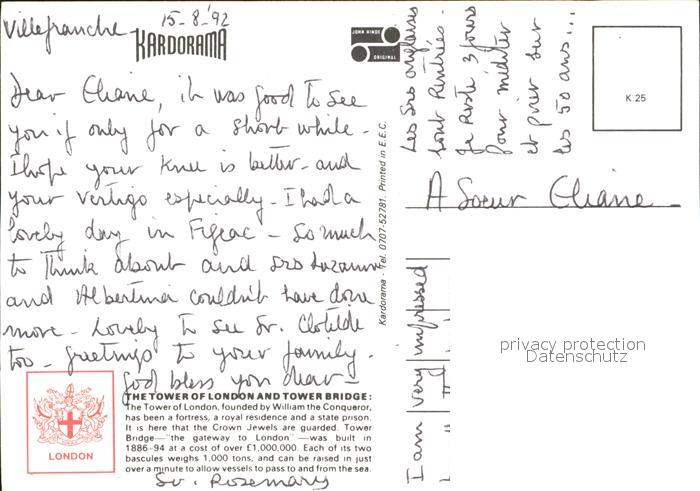 Villefranche 15-8-'92
KARDORAMA
JOHN HINDE
ORIGINAL
Dear Eliane, it was good to see
you if only for a short while -
I hope your knee is better - and
your vertigo especially - I had a
lovely day in Figeac - so much
to think about and Srs Suzanne
and Albertina couldn't have done
more - Lovely to see Sr. Clotilde
too - Greetings to your family -
God bless you dear -
LONDON
THE TOWER OF LONDON AND TOWER BRIDGE:
The Tower of London, founded by William the Conqueror,
has been a fortress, a royal residence and a state prison.
It is here that the Crown Jewels are guarded. Tower
Bridge—"the gateway to London"—was built in
1886-94 at a cost of over £1,000,000. Each of its two
bascules weighs 1,000 tons, and can be raised in just
over a minute to allow vessels to pass to and from the sea.
Sr. Rosemary
Kardorama - Tel. 0707-52781. Printed in E.E.C.
Les Srs anglaises
sont rentrées.
Je reste 3 jours
pour méditer
et prier sur
les 50 ans...
K 25
A Soeur Eliane -
I am very impressed
privacy protection
Datenschutz